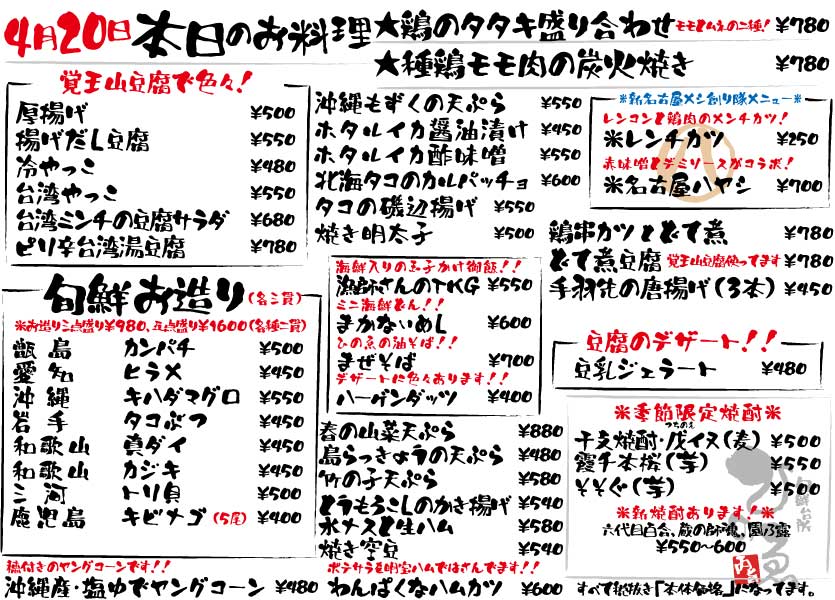 4月20日 本日のお料理
★鶏のタタキ盛り合わせ モモとムネの二種! ¥780
★種鶏モモ肉の炭火焼き ¥780
覚王山豆腐で色々!
厚揚げ ¥500
揚げだし豆腐 ¥550
冷やっこ ¥480
台湾やっこ ¥550
台湾ミンチの豆腐サラダ ¥680
ピリ辛台湾湯豆腐 ¥780
旬鮮お造り(各三貫)
※お造り三点盛り¥980、五点盛り¥1600(各種二貫)
甑島 カンパチ ¥500
愛知 ヒラメ ¥450
沖縄 キハダマグロ ¥550
岩手 タコぶつ ¥450
和歌山 真ダイ ¥450
和歌山 カジキ ¥450
三河 トリ貝 ¥500
鹿児島 キビナゴ(5尾) ¥400
穂付きのヤングコーンです!
沖縄産・塩ゆでヤングコーン ¥480
沖縄もずくの天ぷら ¥550
ホタルイカ醤油漬け ¥450
ホタルイカ酢味噌 ¥550
北海タコのカルパッチョ ¥600
タコの磯辺揚げ ¥550
焼き明太子 ¥500
海鮮入りの玉子かけ御飯!!
漁師さんのTKG ¥550
ミニ海鮮どん!!
まかないめし ¥600
ひの魚の油そば!!
まぜそば ¥700
デザートに色々あります!!
ハーゲンダッツ ¥400
春の山菜天ぷら ¥880
島らっきょうの天ぷら ¥480
竹の子天ぷら ¥580
とうもろこしのかき揚げ ¥540
水ナスと生ハム ¥580
焼き空豆 ¥540
ポテサラを明宝ハムではさんでます!!
わんぱくなハムカツ ¥600
※新名古屋メシ創り隊メニュー※
レンコンと鶏肉のメンチカツ!
※レンチカツ ¥250
赤味噌とデミソースがコラボ!
※名古屋ハヤシ ¥700
鶏串カツとどて煮 ¥780
どて煮豆腐 覚王山豆腐使ってます ¥780
手羽先の唐揚げ(3本) ¥450
豆腐のデザート!!
豆乳ジェラート ¥480
※季節限定焼酎※
干支焼酎・戊イヌ(麦) ¥500
つちのえ
霞千本桜(芋) ¥550
そそぐ(芋) ¥500
※新焼酎あります!※
六代目百合、蔵の師魂、園乃露
¥550~600
すべて税抜き「本体価格」になってます。